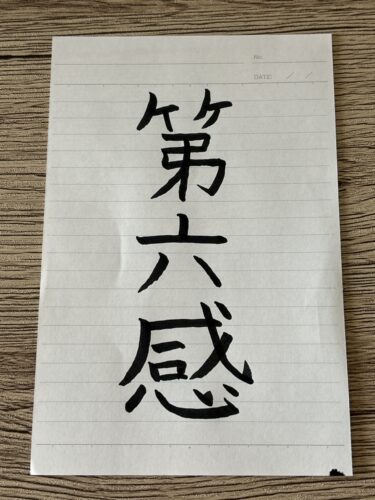 No.
DATE / /
第六感